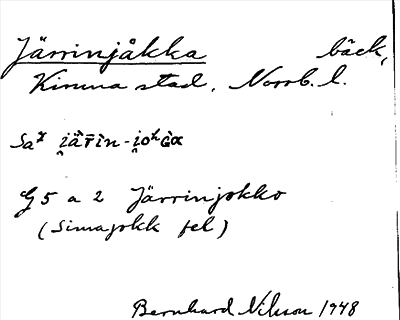 Järrinjåkka bäck,
Kiruna stad, Norrb. l.
G 5 a 2 Järrinjokko
(Simajokk fel)
Bernhard Nilsson 1948